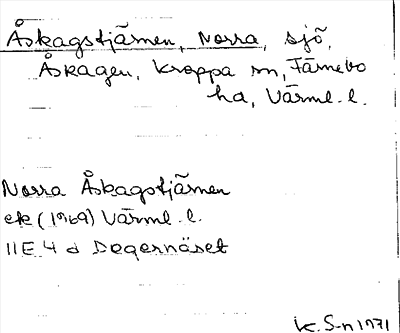 Åskagstjärnen, Norra, sjö,
Åskagen, Kroppa sn, Färnebo
hd, Värml. l.
Norra Åskagstjärnen
ek (1969) Värml. l.
11E 4 d Degernäset
K. S-n 1971